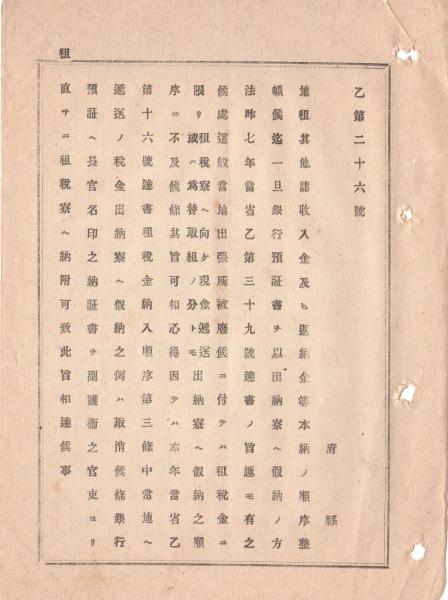 租
乙第二十六號
府縣
地租其他諸收入金及ヒ返納金等本納ノ順序整
頓候迄一旦銀行預証書ヲ以出納寮ヘ假納ノ方
法昨七年當省乙第三十九號達書ノ旨趣モ有之
候處這般當地出張所被廢候ニ付テハ租税金ニ
限リ租税寮ヘ向ケ現金遞送
或ハ爲替取組ノ分トモ出納寮ヘ假納之順
序ニ不及候條其旨可相心得因テハ本年當省乙
第十六號達書租税金納入順序第三條中當地ヘ
遞送ノ税金出納寮ヘ假納之例ハ取消候條銀行
預証ヘ長官名印之納証書ヲ副護衛之官吏ヨリ
直チニ租税寮ヘ納附可致此旨相達候事